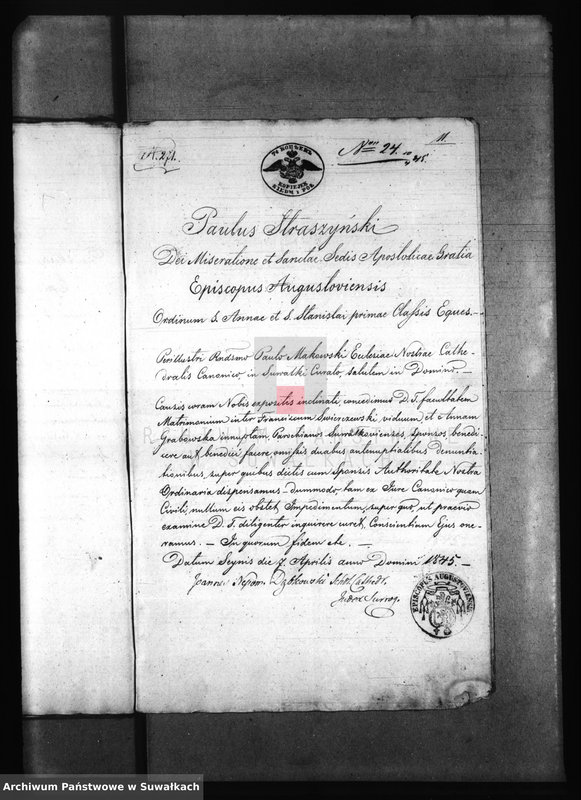 N. 271.
75 КОПѢЕКЪ
KOPIEJEK
11
Nrus 24.
1845.
Paulus Straszyński
Dei Miseratione et Sanctae Sedis Apostolicae Gratia
Episcopus Augustoviensis
Ordinum S. Annae et S. Stanislai primae Classis Eques. —
Perillustri Rndsmo Paulo Makowski Eclesiae Nostrae Cathe-
dralis Canonico, in Suwałki Curato, salutem in Domino. —
Causis coram Nobis expositis inclinati, concedimus D. T. facultatem
Matrimonium inter Franciscum Swierczewski viduum, et Annam
Grabowska innuptam Parochianos Suwałkovienses, sponsos benedi-
cere aut benedici facere, omissis duabus antenuptialibus denuntia-
tionibus, super quibus dictis cum Sponsis Authoritate Nostra
Ordinaria dispensamus — dummodo tam ex Jure Canonico quam
Civili, nullum eis obstet Impedimentum, super quo, ut praevio
examine D. T. diligenter inquirere curet, Conscientiam Ejus one-
ramus. — In quorum fidem etc. —
Datum Seynis die 7. Aprilis anno Domini 1845 —
Joannes Nepom
Surrog.
EPISCOPUS AUGUSTOVIENSIS
Archiwum Państwowe w Suwałkach